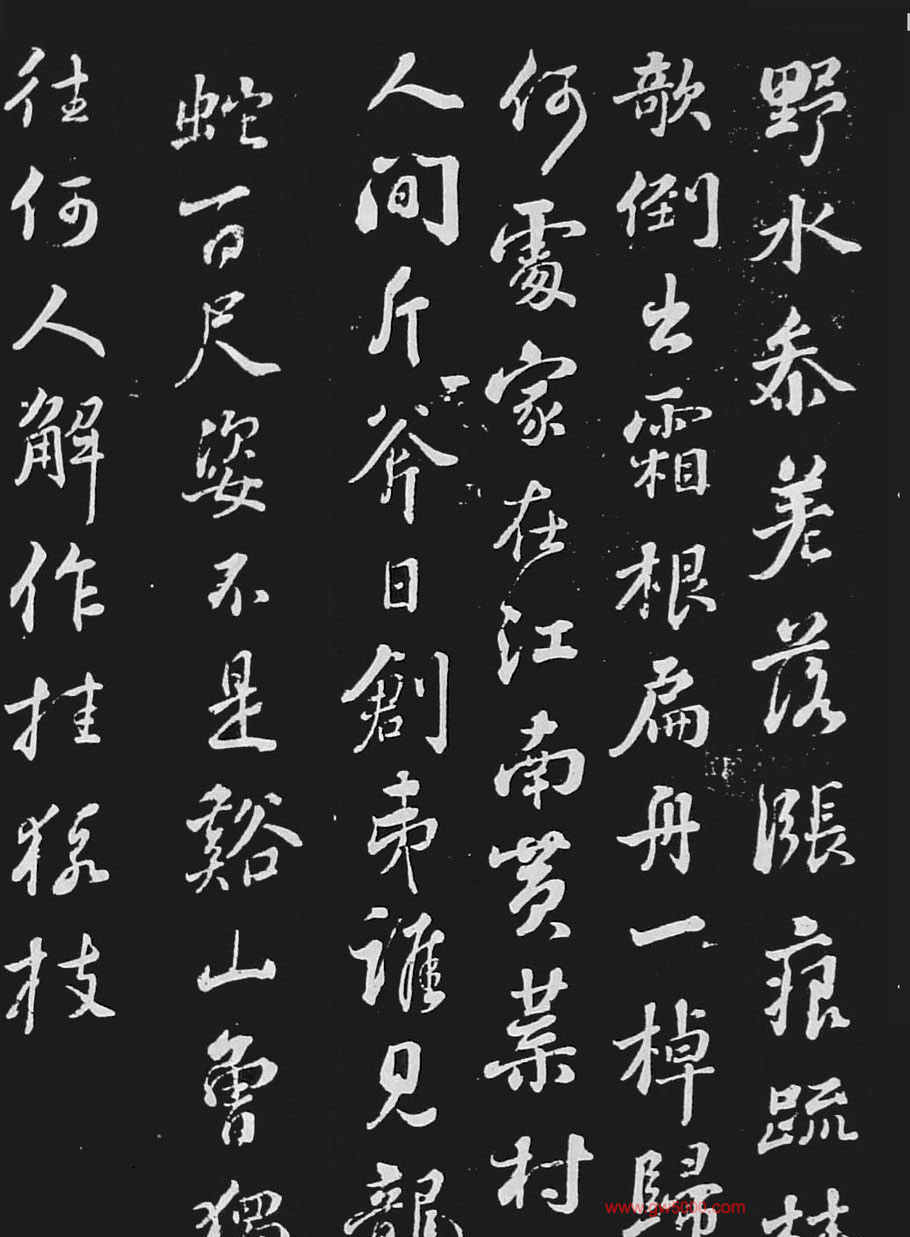 野水叅差落漲痕疏林
欹倒出霜根扁舟一棹歸
何處家在江南黄葉村
人間斤斧日創夷誰見龍
蛇百尺姿不是谿山曾獨
往何人解作挂猨枝
www.gw5000.com